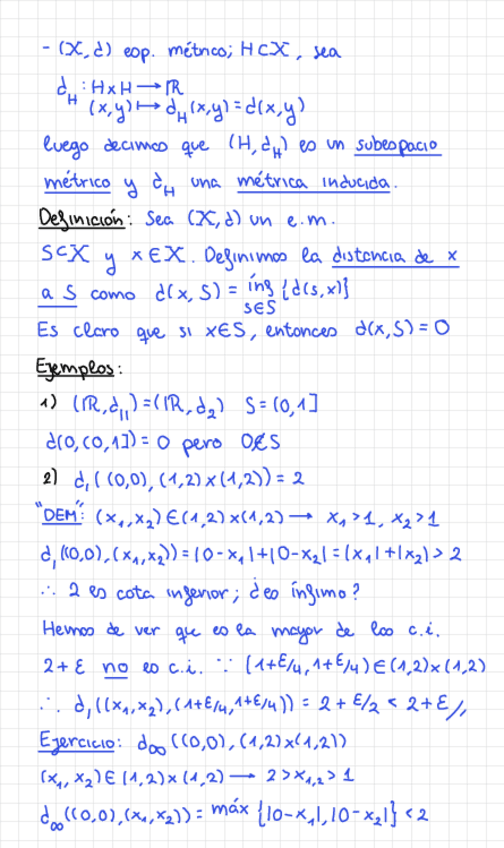 - (X,d) esp. métrico; H⊂X, sea
d_H : H×H → ℝ
(x,y) ↦ d_H(x,y) = d(x,y)
luego decimos que (H,d_H) es un subespacio
métrico y d_H una métrica inducida.
Definición: Sea (X,d) un e.m.
S⊂X y x∈X. Definimos la distancia de x
a S como d(x,S) = ínf {d(s,x)}
s∈S
Es claro que si x∈S, entonces d(x,S) = 0
Ejemplos:
1) (ℝ,d_||) = (ℝ,d_2) S = (0,1]
d(0,(0,1]) = 0 pero 0∉S
2) d_1((0,0),(1,2)×(1,2)) = 2
"DEM": (x_1,x_2)∈(1,2)×(1,2) → x_1>1, x_2>1
d_1((0,0),(x_1,x_2)) = |0-x_1|+|0-x_2| = |x_1|+|x_2| > 2
∴ 2 es cota inferior; ¿es ínfimo?
Hemos de ver que es la mayor de las c.i.
2+ε no es c.i. ∵ (1+ε/4,1+ε/4)∈(1,2)×(1,2)
∴ d_1((x_1,x_2),(1+ε/4,1+ε/4)) = 2+ε/2 < 2+ε //
Ejercicio: d_∞((0,0),(1,2)×(1,2))
(x_1,x_2)∈(1,2)×(1,2) → 2>x_1,2>1
d_∞((0,0),(x_1,x_2)) = máx {|0-x_1|,|0-x_2|} < 2